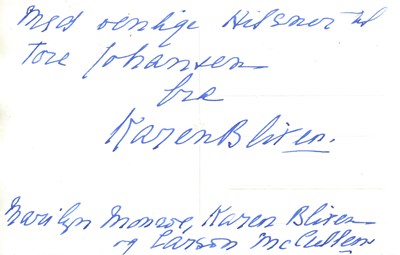 Med venlige Hilsner til
Tore Johansen
fra
Karen Blixen.
Marilyn Monroe, Karen Blixen
og Carson McCullers